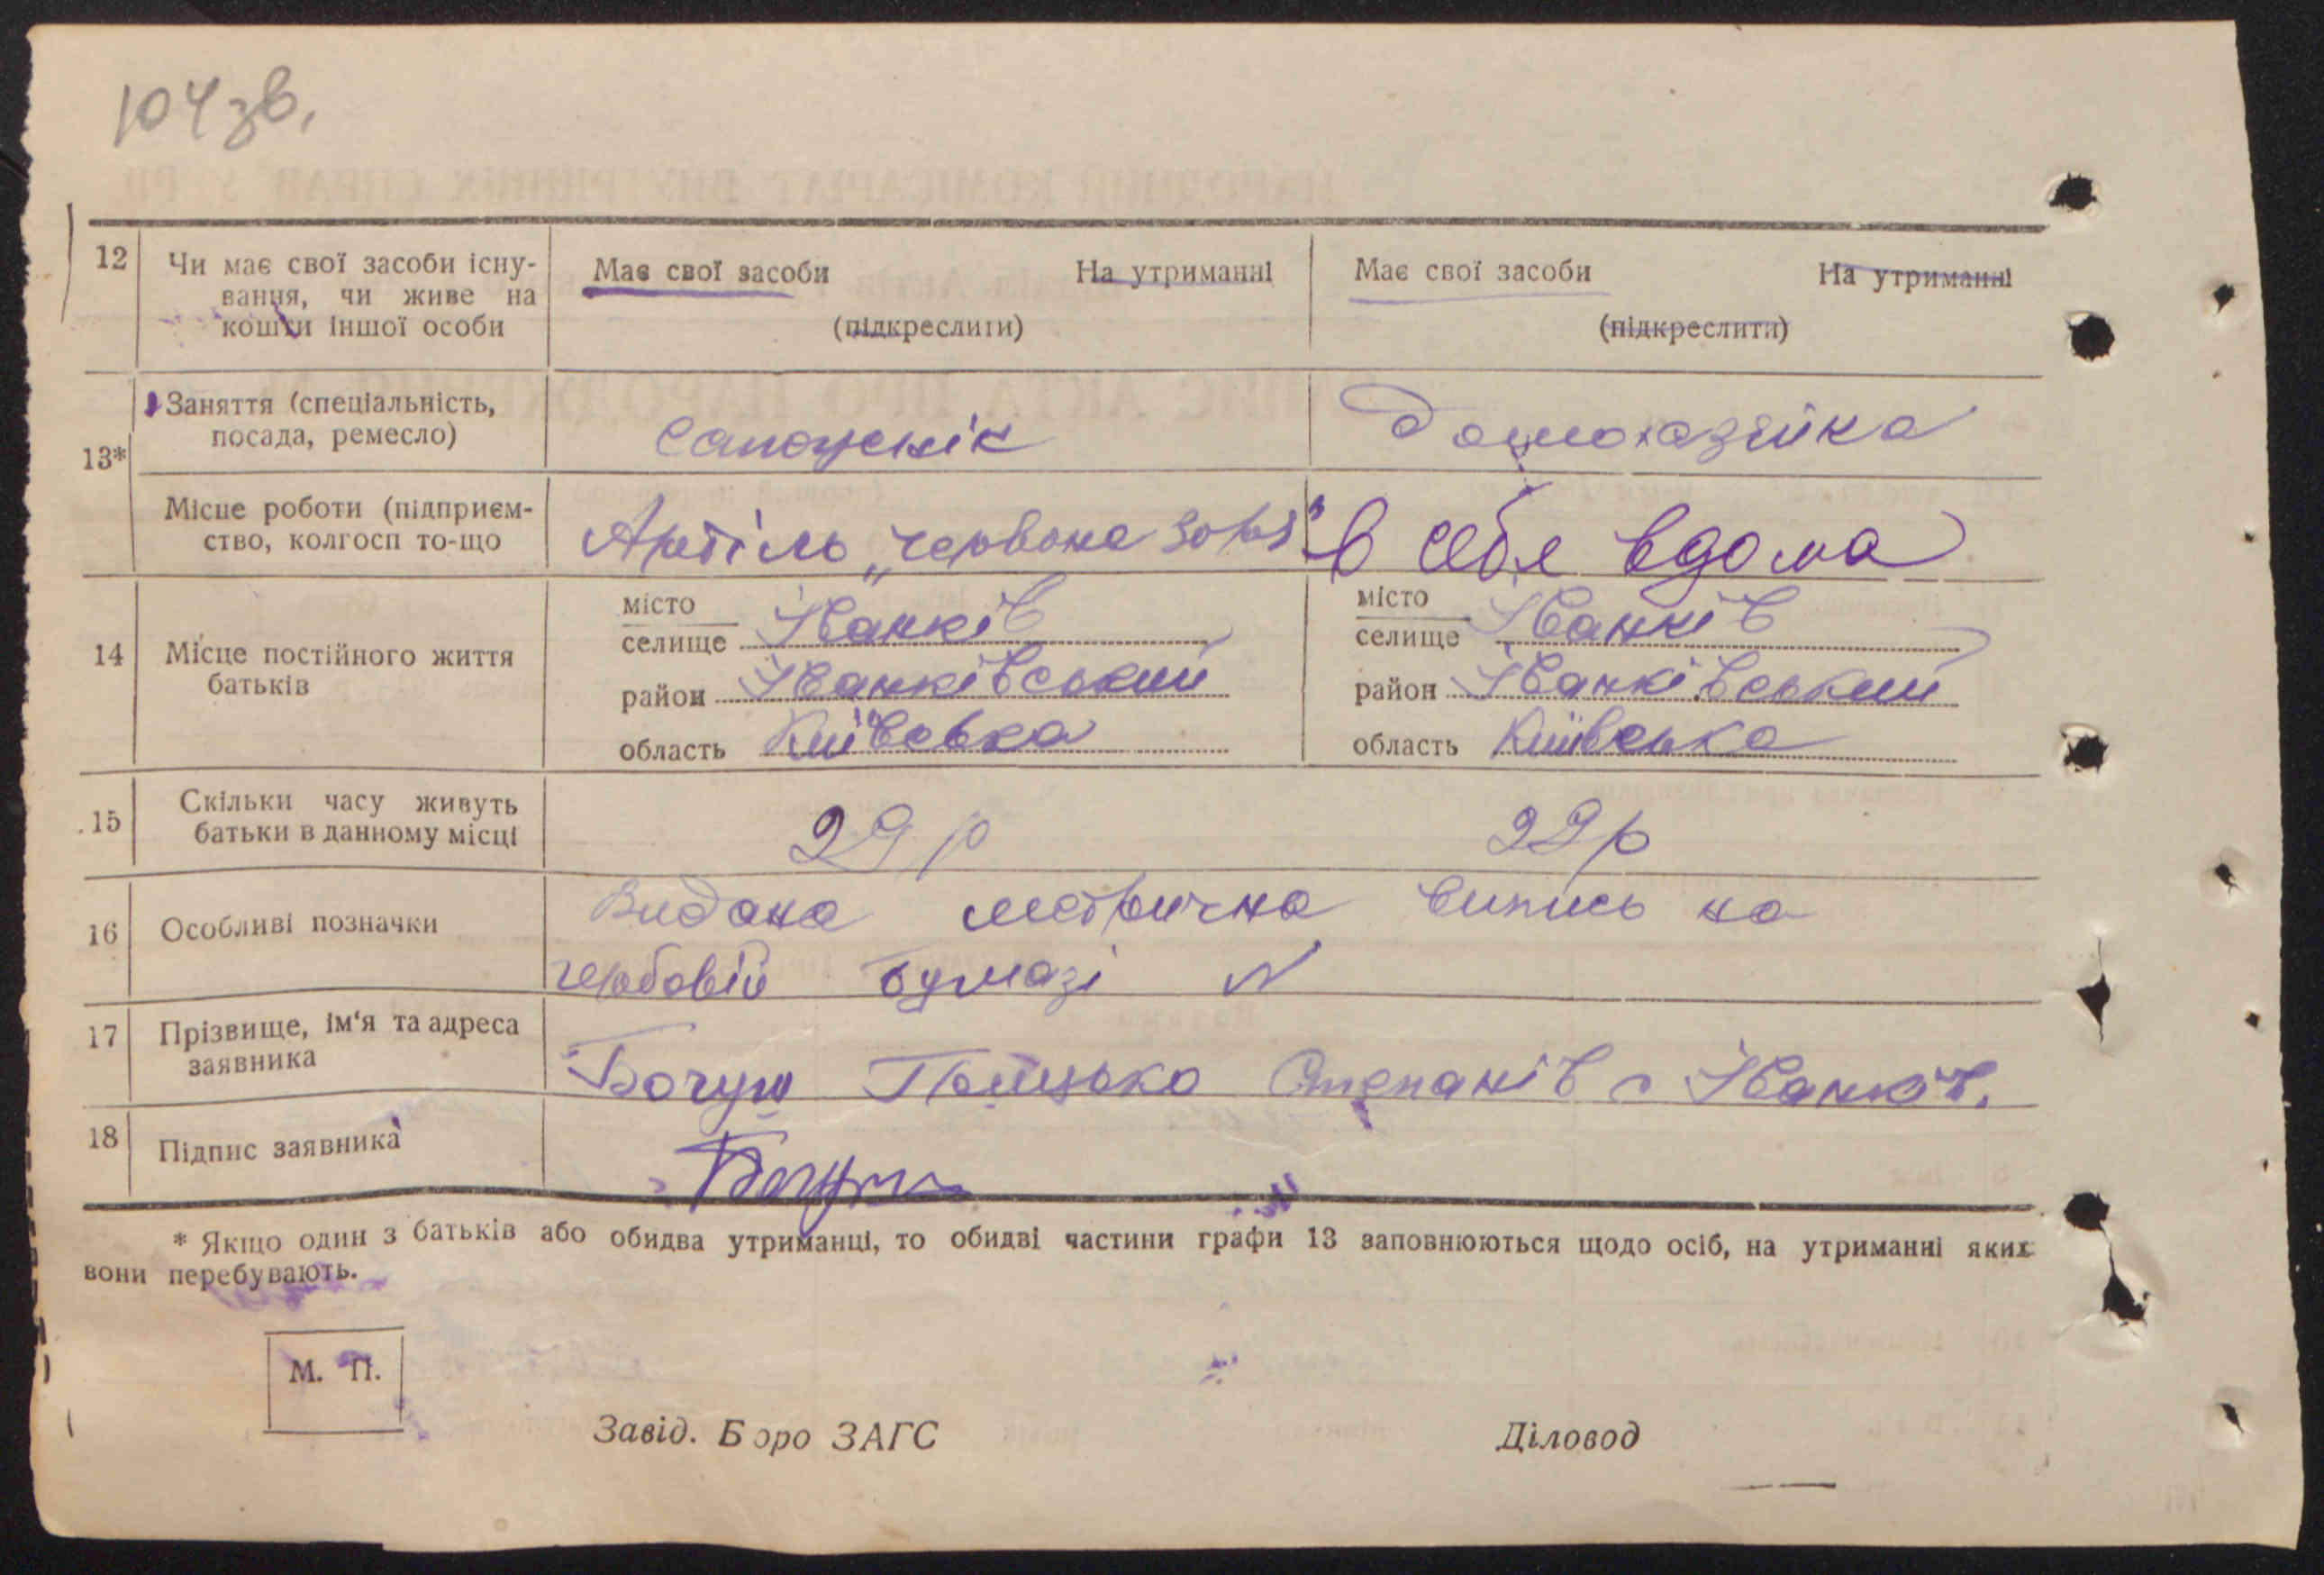 104 зв.
12 Чи має свої засоби існу- Має свої засоби На утриманні Має свої засоби На утриманні
вання, чи живе на
кошти іншої особи (підкреслити) (підкреслити)
13* Заняття (спеціальність, Сапожнік Домохазяйка
посада, ремесло)
Місце роботи (підприєм- Артіль „Червона зоря" в себе вдома
ство, колгосп то-що
14 Місце постійного життя батьків
місто
селище Іванків
район Іванківський
область Київська
місто
селище Іванків
район Іванківський
область Київська
15 Скільки часу живуть 29 р 22 р
батьки в данному місці
16 Особливі позначки Видана метрична випись на
гербовій бумазі N
17 Прізвище, ім'я та адреса Богуш Грицько Степанів с Іванків.
заявника
18 Підпис заявника Богуш
* Якщо один з батьків або обидва утриманці, то обидві частини графи 13 заповнюються щодо осіб, на утриманні яких
вони перебувають.
М. П.
Завід. Бюро ЗАГС Діловод